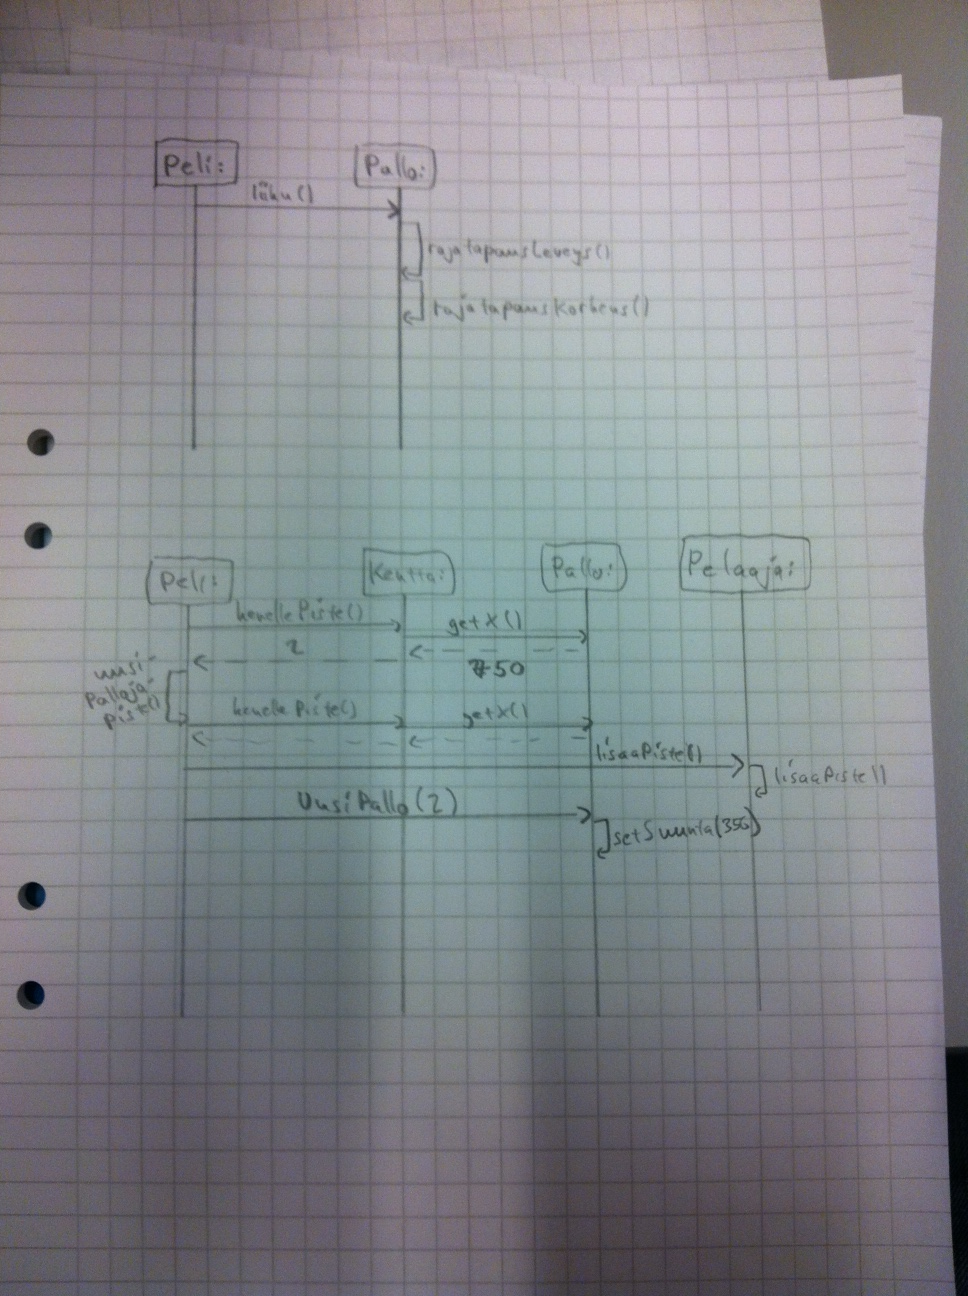 Peli:
Pallo:
liiku()
rajatapausLeveys()
rajatapausKorkeus()
Peli:
Kenttä:
Pallo:
Pelaaja:
kenellePiste()
getX()
2
750
uusi-
Palloja
piste()
kenellePiste()
getX()
lisaaPiste()
lisaaPiste()
UusiPallo(2)
setSuunta(356)